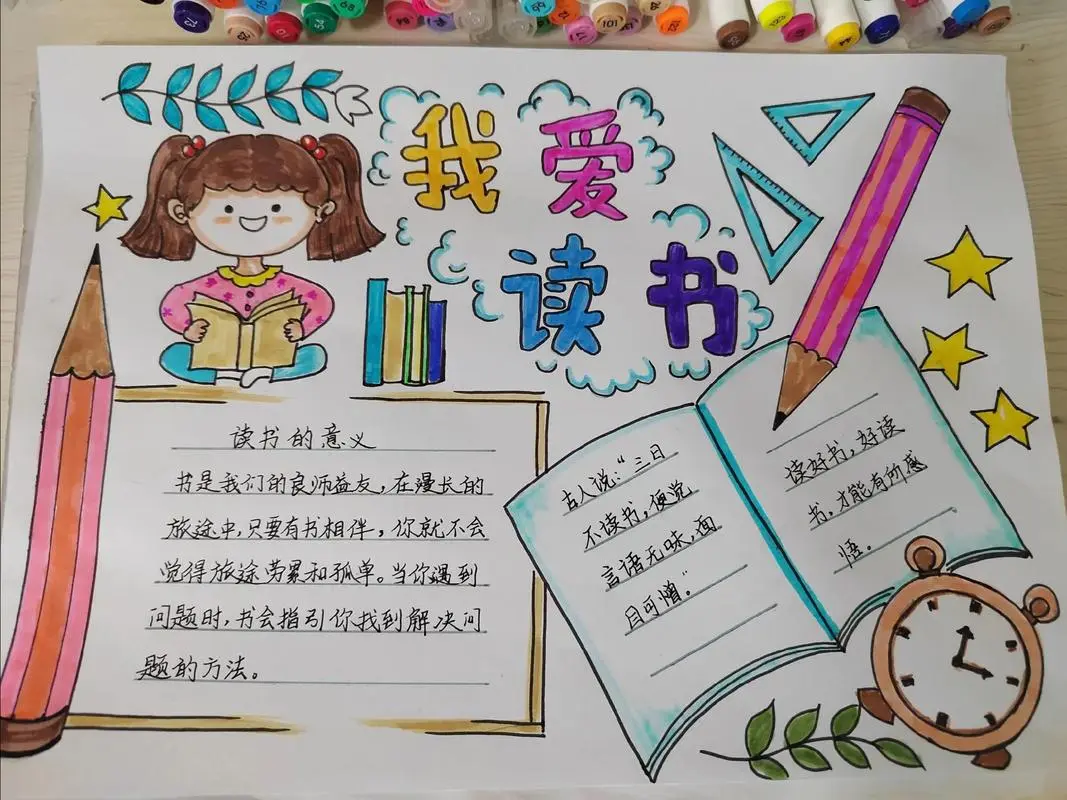 我爱
读书
读书的意义
书是我们的良师益友，在漫长的
旅途中，只要有书相伴，你就不会
觉得旅途劳累和孤单。当你遇到
问题时，书会指引你找到解决问
题的方法。
古人说：“三日
不读书，便说
言语无味，面
目可憎”
读好书，好读
书，才能有所感
悟。